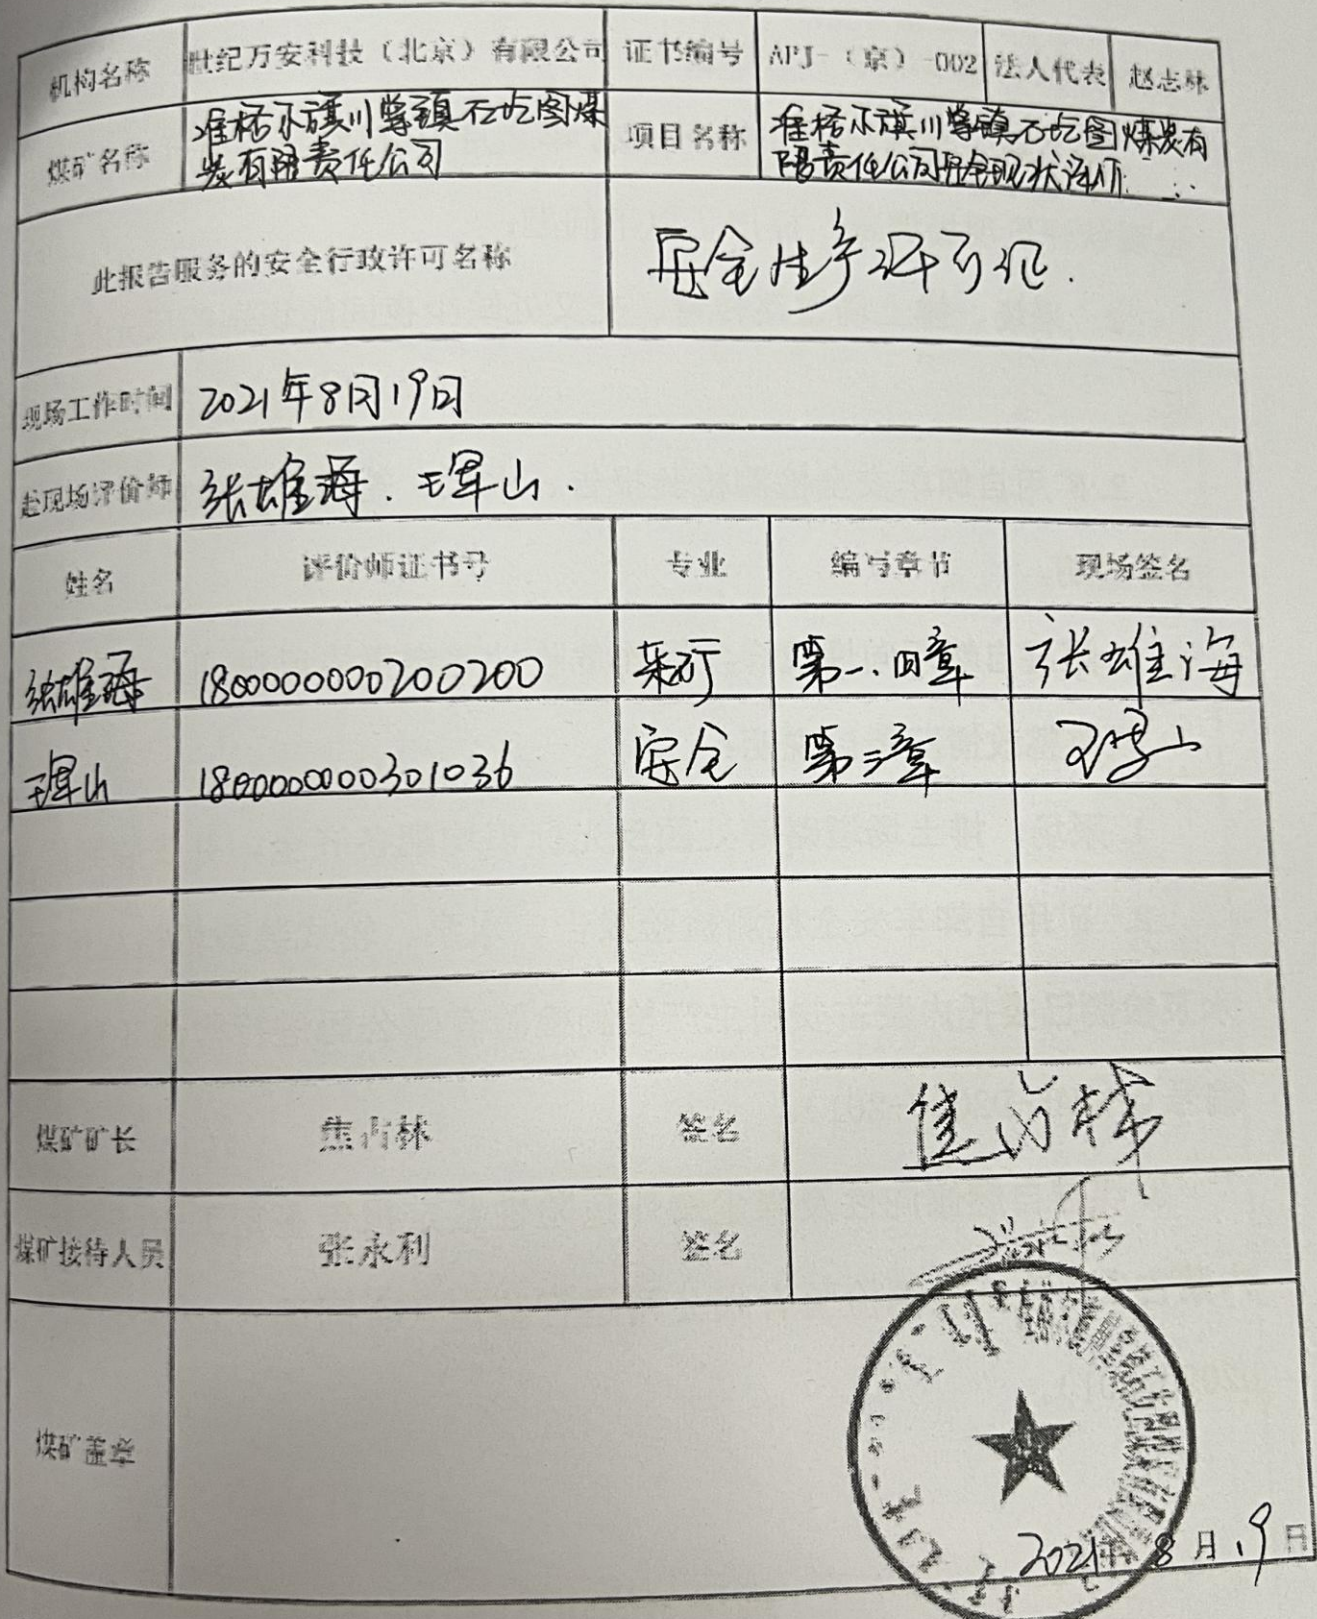 机构名称 世纪万安科技（北京）有限公司 证书编号 APJ-（京）-002 法人代表 赵志林
煤矿名称 准格尔旗川掌镇石圪图煤
炭有限责任公司
项目名称 准格尔旗川掌镇石圪图煤炭有
限责任公司安全现状评价
此报告服务的安全行政许可名称 安全生产许可证.
现场工作时间 2021年8月19日
赴现场评价师 张雄海.王军山.
姓名 评价师证书号 专业 编写章节 现场签名
张雄海 1800000000200200 采矿 第一、四章 张雄海
1800000000301036 安全
煤矿矿长 焦占林 签名 焦占林
煤矿接待人员 张永利 签名
煤矿盖章
2021年8月19日